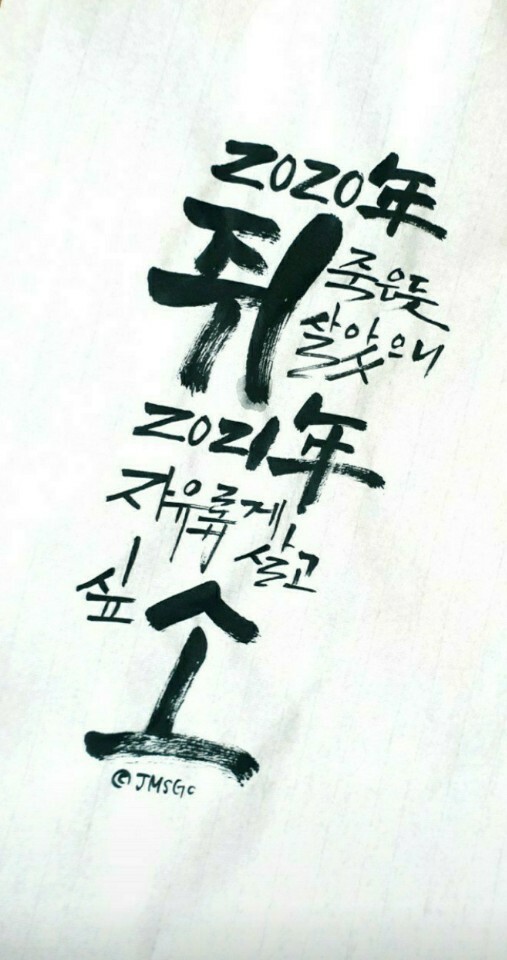 2020年
쥐죽은듯
살았으니
2021年
자유롭게
살고
싶소
@JMSGc